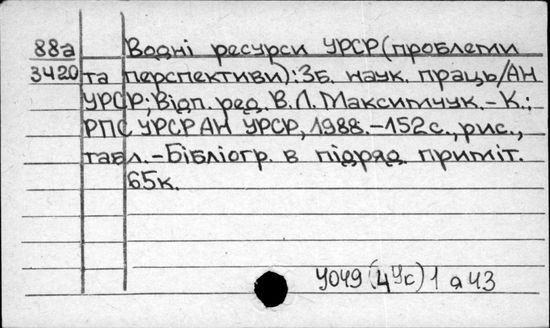 88а Водні ресурси УРСР (проблеми
3420 та перспективи): Зб. наук. праць/АН
УРСР; Відп. ред. В.Л. Максимчук. – К.:
РПС УРСР АН УРСР, 1988. – 152 с., рис.,
табл. – Бібліогр. в підряд. приміт.
65к.
У049(4Ук)1 а43